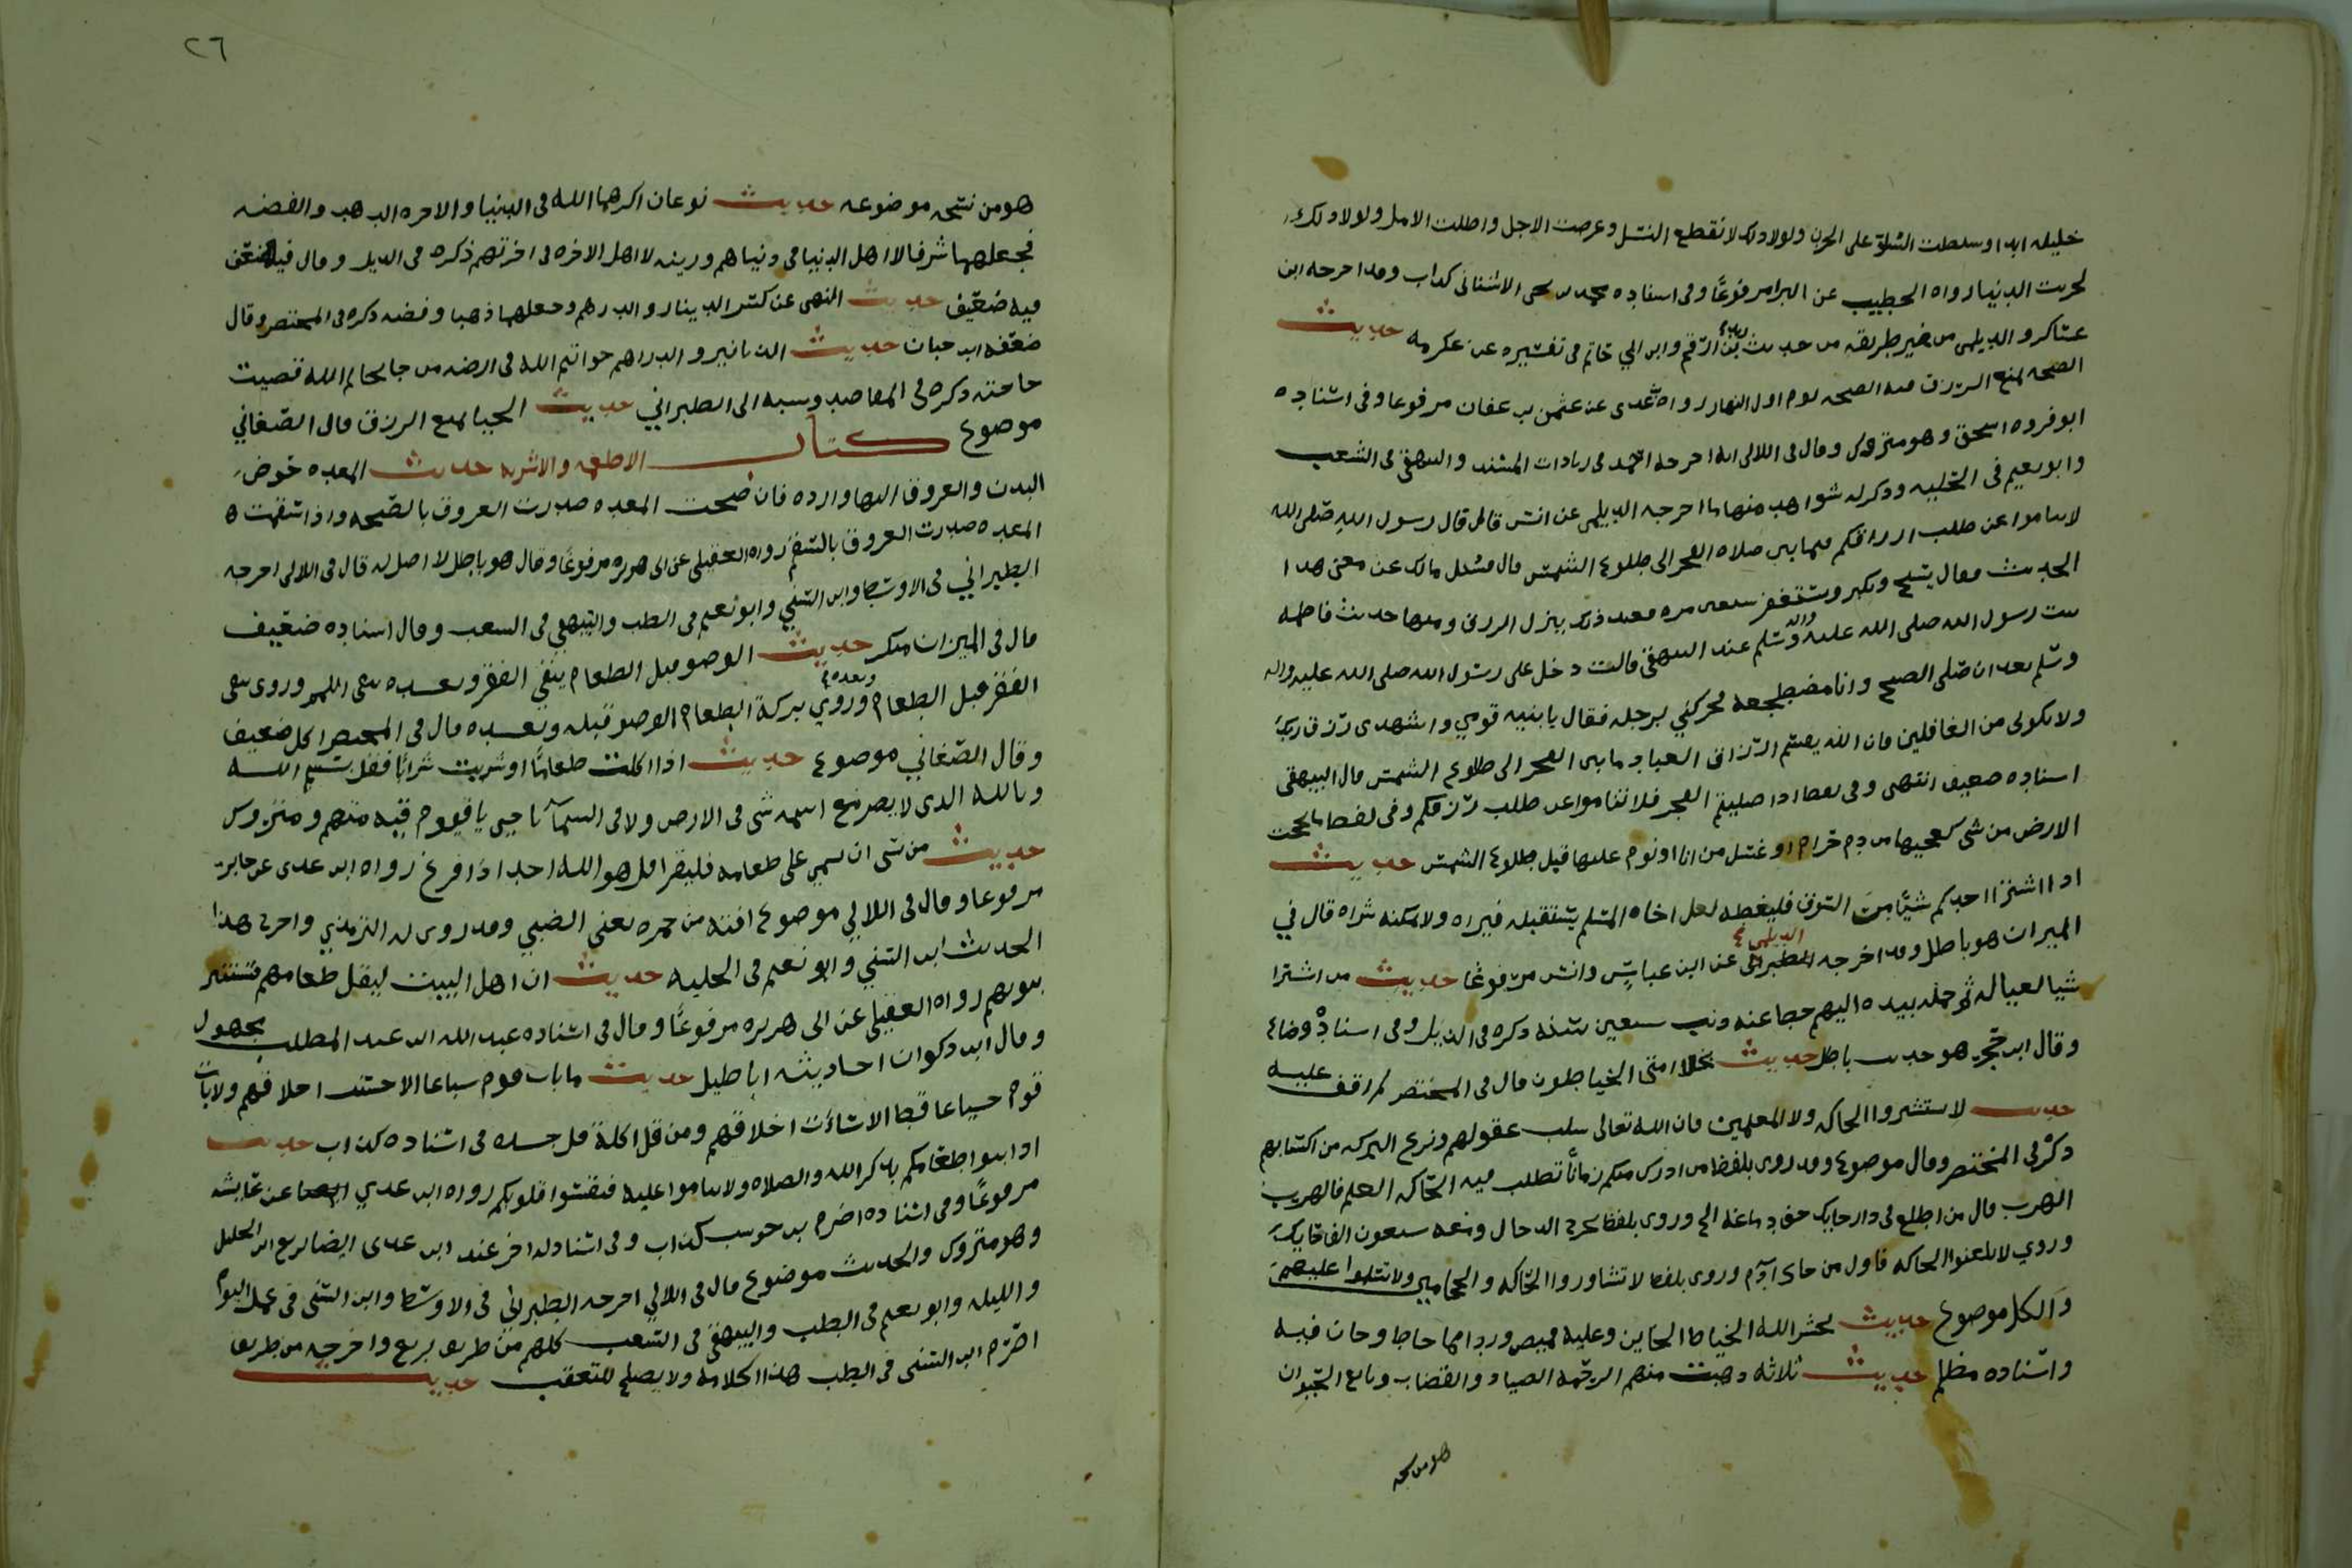 خليله ابدا وسلطت السلوة على الحزن ولولا ذلك لانقطع النسل وعرضت الاجل واطلت الامل ولولا ذلك
لخربت الدنيا رواه الخطيب عن البرا مرفوعًا وفى اسناده محمد بن يحيى الاشنانى كذاب وقد اخرجه ابن
عساكر والديلمى من غير طريقه من حديث زيد بن ارقم وابن ابي حاتم فى تفسيره عن عكرمه حديث
الصبحه تمنع الرزق اول النهار رواه عدى عن عثمن بن عفان مرفوعا وفى اسناده
ابو فروه اسحق وهو متروك وقال فى اللالى اخرجه احمد فى زيادات المسند والبيهقى فى الشعب
وابو نعيم فى الحليه وذكر له شواهد منها ما اخرجه الديلمى عن انس قال قال رسول الله صلى الله
لاتناموا عن طلب ارزاقكم فيما بين صلاة الفجر الى طلوع الشمس قال فسئل مالك عن معنى هذا
الحديث فقال يسبح ويكبر ويستغفر سبعين مره فعند ذلك ينزل الرزق ومنها حديث فاطمه
بنت رسول الله صلى الله عليه واله وسلم عند البيهقى قالت دخل على رسول الله صلى الله عليه واله
وسلم بعد ان صلى الصبح وانا مضطجعه فحركني برجله فقال يا بنيه قومي واشهدى رزق ربك
ولاتكونى من الغافلين فان الله يقسم ارزاق العباد ما بين الفجر الى طلوع الشمس قال البيهقى
اسناده ضعيف انتهى وفى لفظ اذا صليتم الفجر فلا تناموا عن طلب رزقكم وفى لفظ ما عجت
الارض من شى كعجيجها من دم حرام او غسل من زنا او نوم عليها قبل طلوع الشمس حديث
اذا اشترا احدكم شيًا من السوق فليغطه لعل اخاه المسلم يستقبله فيراه ولا يمكنه شراه قال في
الميزان هو باطل وقد اخرجه الديلمى عن ابن عباس وانس مرفوعًا حديث من اشترا
شيا لعياله ثم حمله بيده اليهم حط عنه ذنب سبعين سنه ذكره فى الذيل وفى اسناده وضاع
وقال ابن حجر هو حديث باطل حديث بخلا امتى الخياطون قال فى المختصر لم اقف عليه
حديث لاتستشيروا الحاكه ولا المعلمين فان الله تعالى سلب عقولهم ونزع البركه من اكسابهم
ذكره فى المختصر وقال موضوع وقد روى بلفظ من ادرك منكم زمانًا تطلب فيه الحاكه العلم فالهرب
الهرب قال من اطلع فى دار حايك خف دماغه الخ وروى بلفظ يخرج الدجال ومعه سبعون الف حايك
وروي لاتلعنوا الحاكه فاول من حاك آدم وروى بلفظ لاتشاوروا الحاكه والحجامين ولاتسلموا عليهم
والكل موضوع حديث يحشر الله الخياط الخاين وعليه قميص وردا مما خاط وخان فيه
واسناده مظلم حديث ثلاثه ذهبت منهم الرحمه الصياد والقصاب وبايع الحيوان
هو من نسخه
٢٦
هو من نسخه موضوعه حديث نوعان اكرمهما الله فى الدنيا والاخره الذهب والفضه
فجعلهما شرفا لاهل الدنيا فى دنياهم وزينه لاهل الاخره فى اخرتهم ذكره فى الذيل وقال
فيه ضعيف حديث النهى عن كسر الدينار والدرهم وجعلهما ذهبا وفضه ذكره فى المختصر وقال
ضعفه ابن حبان حديث الدنانير والدراهم خواتيم الله فى ارضه من جا بخاتم الله قضيت
حاجته ذكره فى المقاصد ونسبه الى الطبراني حديث الحيا يمنع الرزق قال الصغاني
موضوع كتاب الاطعمه والاشربه حديث المعده حوض
البدن والعروق اليها وارده فان صحت المعده صدرت العروق بالصحه واذا سقمت
المعده صدرت العروق بالسقم رواه العقيلى عن ابى هريره مرفوعًا وقال هو باطل لا اصل له قال فى اللالى اخرجه
الطبراني فى الاوسط وابن السني وابو نعيم فى الطب والبيهقى فى الشعب وقال اسناده ضعيف
قال فى الميزان منكر حديث الوضو قبل الطعام ينفي الفقر وبعده ينفى اللمم وروى ينفى
الفقر قبل الطعام وبعده وروي بركة الطعام الوضو قبله وبعده قال فى المختصر الكل ضعيف
وقال الصغاني موضوع حديث اذا اكلت طعامًا او شربت شرابًا فقل بسم الله
وبالله الذى لا يضر مع اسمه شى فى الارض ولا فى السمآ يا حى يا قيوم فيه متهم ومتروك
حديث من نسى ان يسمي على طعامه فليقرا قل هو الله احد اذا فرغ رواه ابن عدى عن جابر
مرفوعا وقال فى اللالي موضوع افته حمزه يعني النصيبي وقد روى له الترمذي واخرج هذا
الحديث ابن السني وابو نعيم فى الحليه حديث ان اهل البيت ليقل طعامهم فتستنير
بيوتهم رواه العقيلي عن ابى هريره مرفوعًا وقال فى اسناده عبد الله بن عبد المطلب مجهول
وقال ابن ذكوان احاديثه اباطيل حديث ما بات قوم شباعا الا حسنت اخلاقهم ولا بات
قوم جياعا قط الا سائت اخلاقهم ومن قل اكله قل فى اسناده كذاب حديث
اذيبوا طعامكم بذكر الله والصلاه ولا تناموا عليه فتقسوا قلوبكم رواه ابن عدي ايضا عن عايشه
مرفوعًا وفى اسناده اصرم بن حوشب كذاب وفى اسناد له اخر عند ابن عدى ايضا بزيع ابو الخليل
وهو متروك والحديث موضوع قال فى اللالي اخرجه الطبراني فى الاوسط وابن السنى فى عمل اليوم
والليله وابو نعيم فى الطب والبيهقى فى الشعب كلهم من طريق بزيع واخرجه من طريق
اصرم ابن السنى فى الطب هذا كلامه ولا يصلح للتعقب حديث